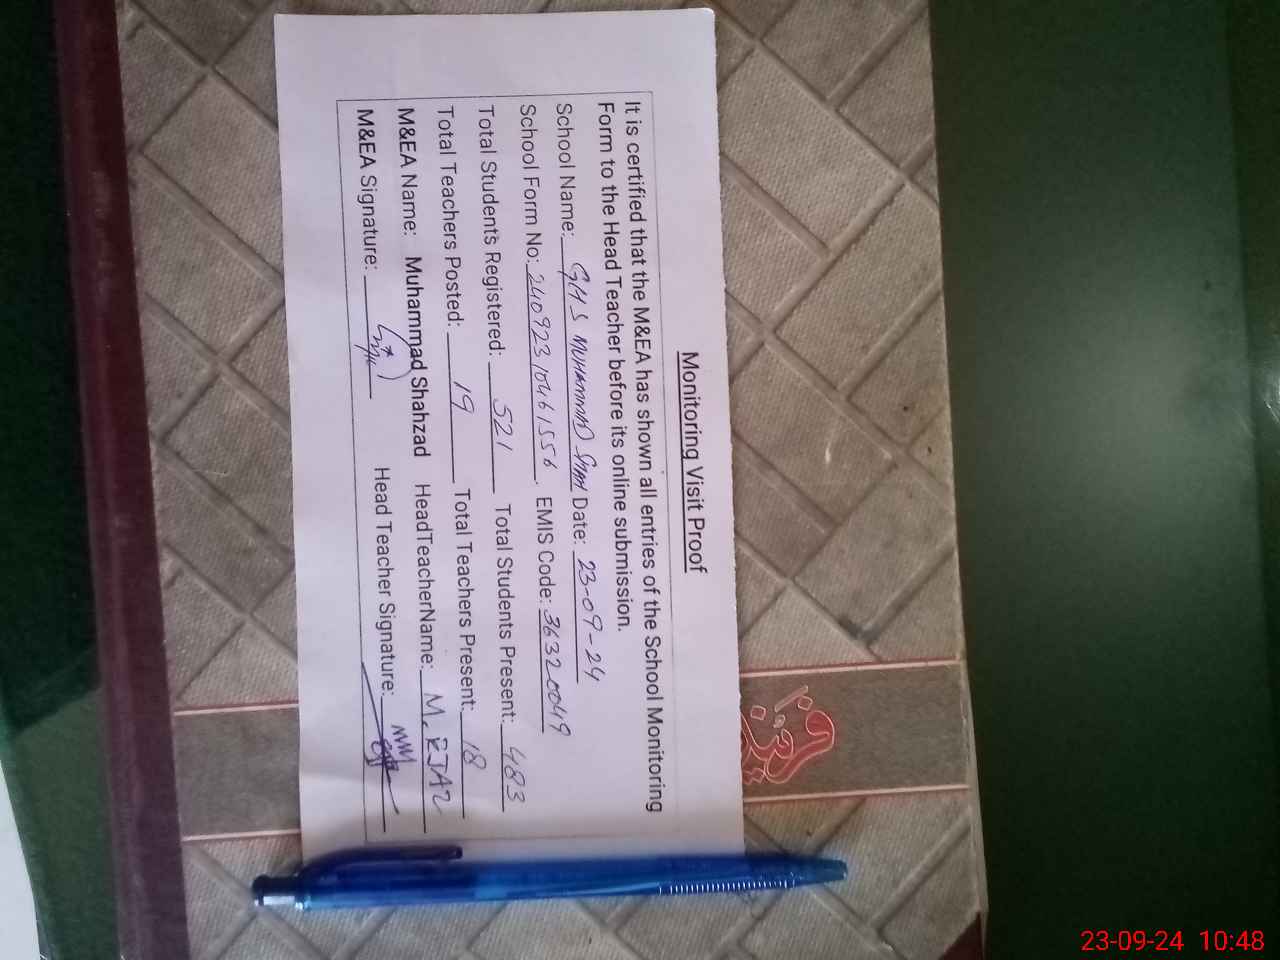 Monitoring Visit Proof
It is certified that the M&EA has shown all entries of the School Monitoring
Form to the Head Teacher before its online submission.
School Name: GHS MUHAMMAD SHAH Date: 23-09-24
School Form No: 24092310461556 EMIS Code: 36320049
Total Students Registered: 521 Total Students Present: 483
Total Teachers Posted: 19 Total Teachers Present: 18
M&EA Name: Muhammad Shahzad HeadTeacherName: M. EJAZ
M&EA Signature: Head Teacher Signature:
23-09-24 10:48